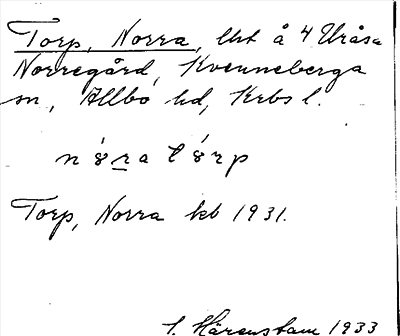 Torp, Norra, lht å 4 Uråsa
Norregård, Kvenneberga
sn, Allbo hd, Krbs l.
Torp, Norra kb 1931.
S. Härenstam 1933